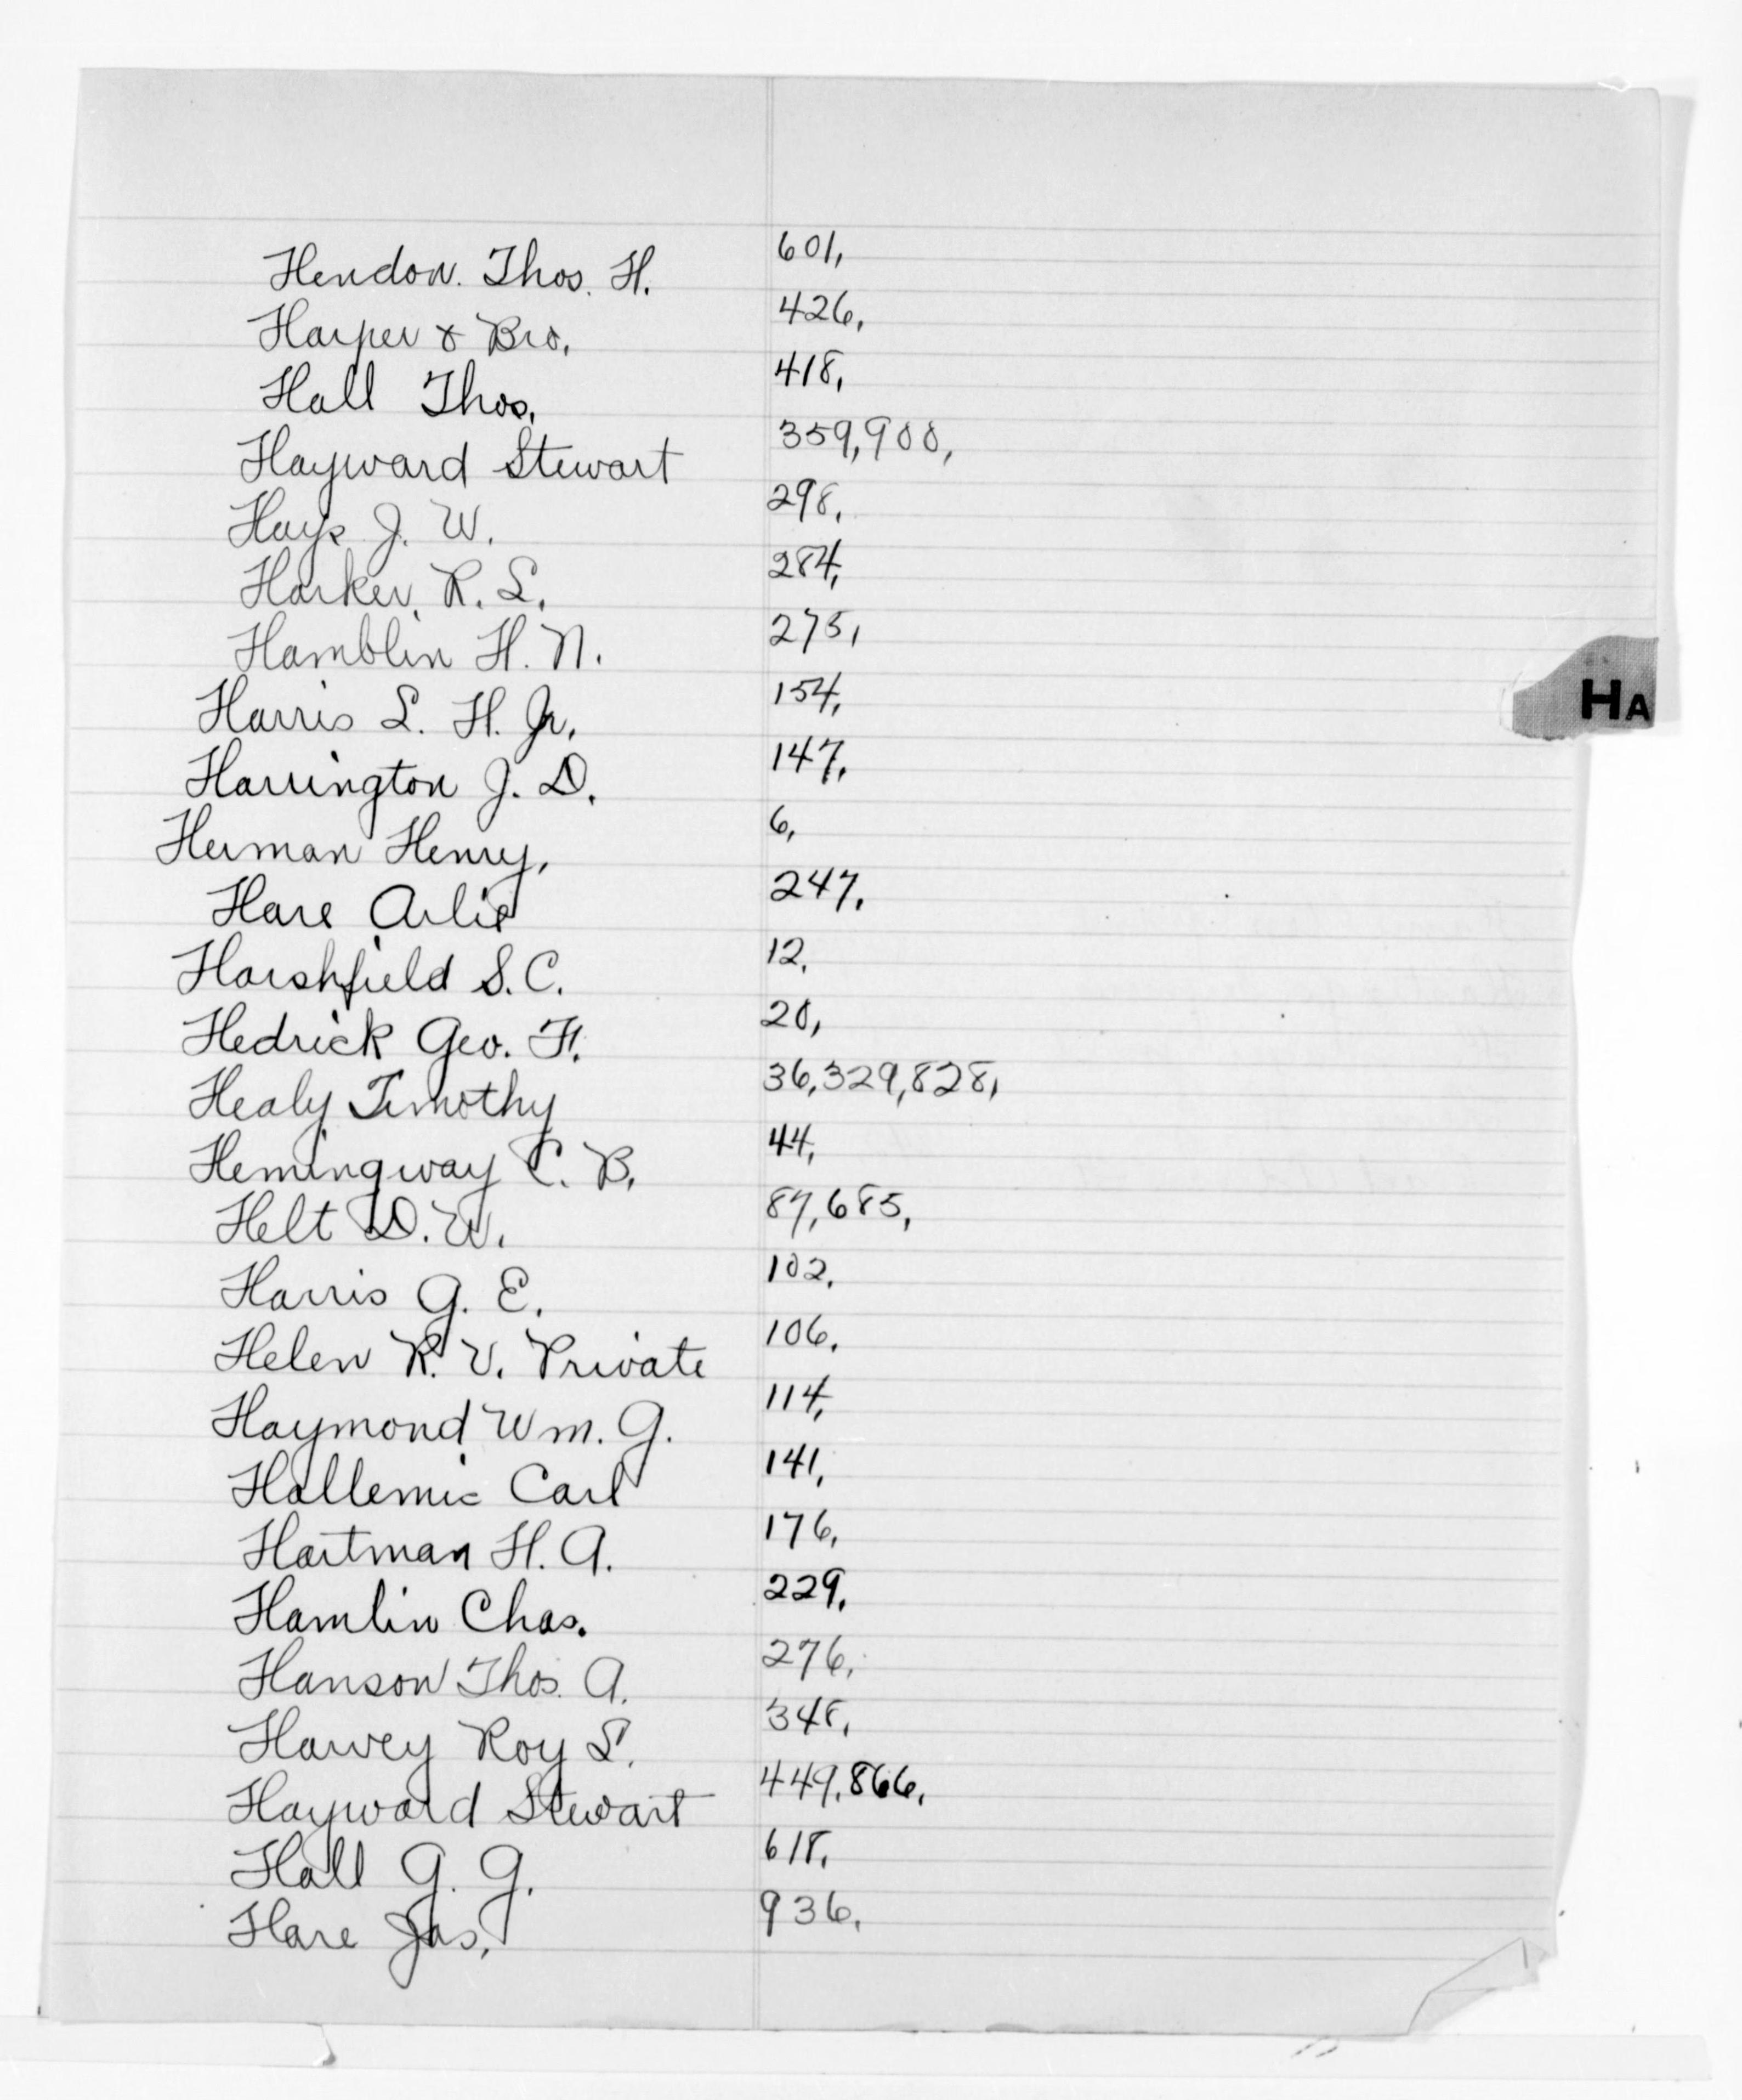 Hendon. Thos. H. 601,
Harper & Bro. 426,
Hall Thos. 418,
Hayward Stewart 359,900,
Hays J. W. 298,
Harker. R. L. 284,
Hamblin H. N. 275,
Harris L. H. Jr. 154,
HA
Harrington J. D. 147,
Herman Henry, 6,
Hare Arlie 247,
Harshfield S. C. 12,
Hedrick Geo. F. 20,
Healy Timothy 36,329,828,
Hemingway C. B. 44,
Helt D. W. 87,685,
Harris G. E. 102,
Helen R. V. Private 106,
Haymond Wm. G. 114,
Carl 141,
Hartman H. A. 176,
Hamlin Chas. 229,
Hanson Thos. A. 276,
Harvey Roy L. 348,
Hayward Stewart 449,866,
Hall G. G. 618,
Hare Jas. 936,